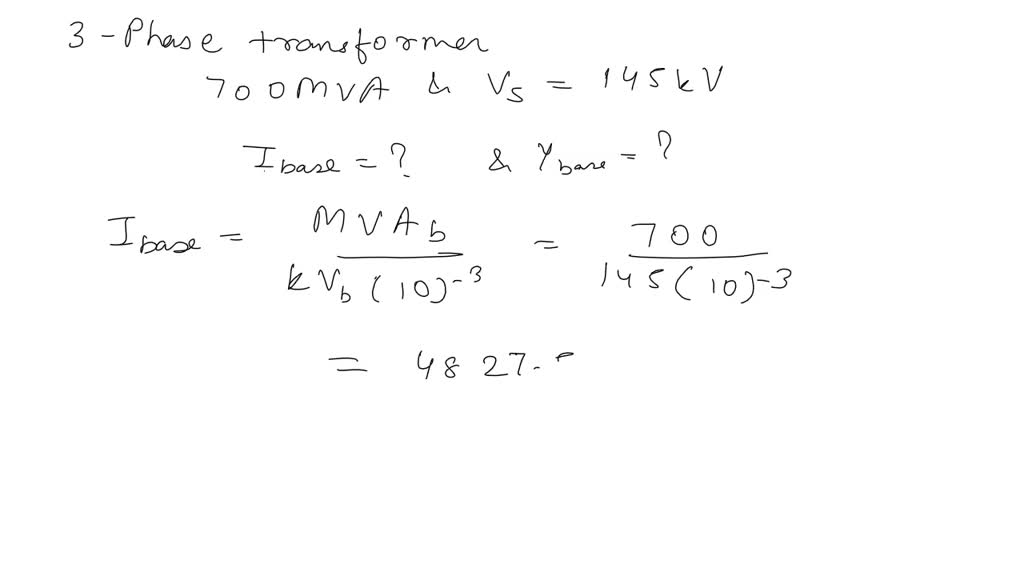 3-Phase transformer
700MVA & Vs = 145kV
Ibase = ? & Ybase = ?
Ibase = MVAb / kVb (10)-3 = 700 / 145(10)-3
= 4827.